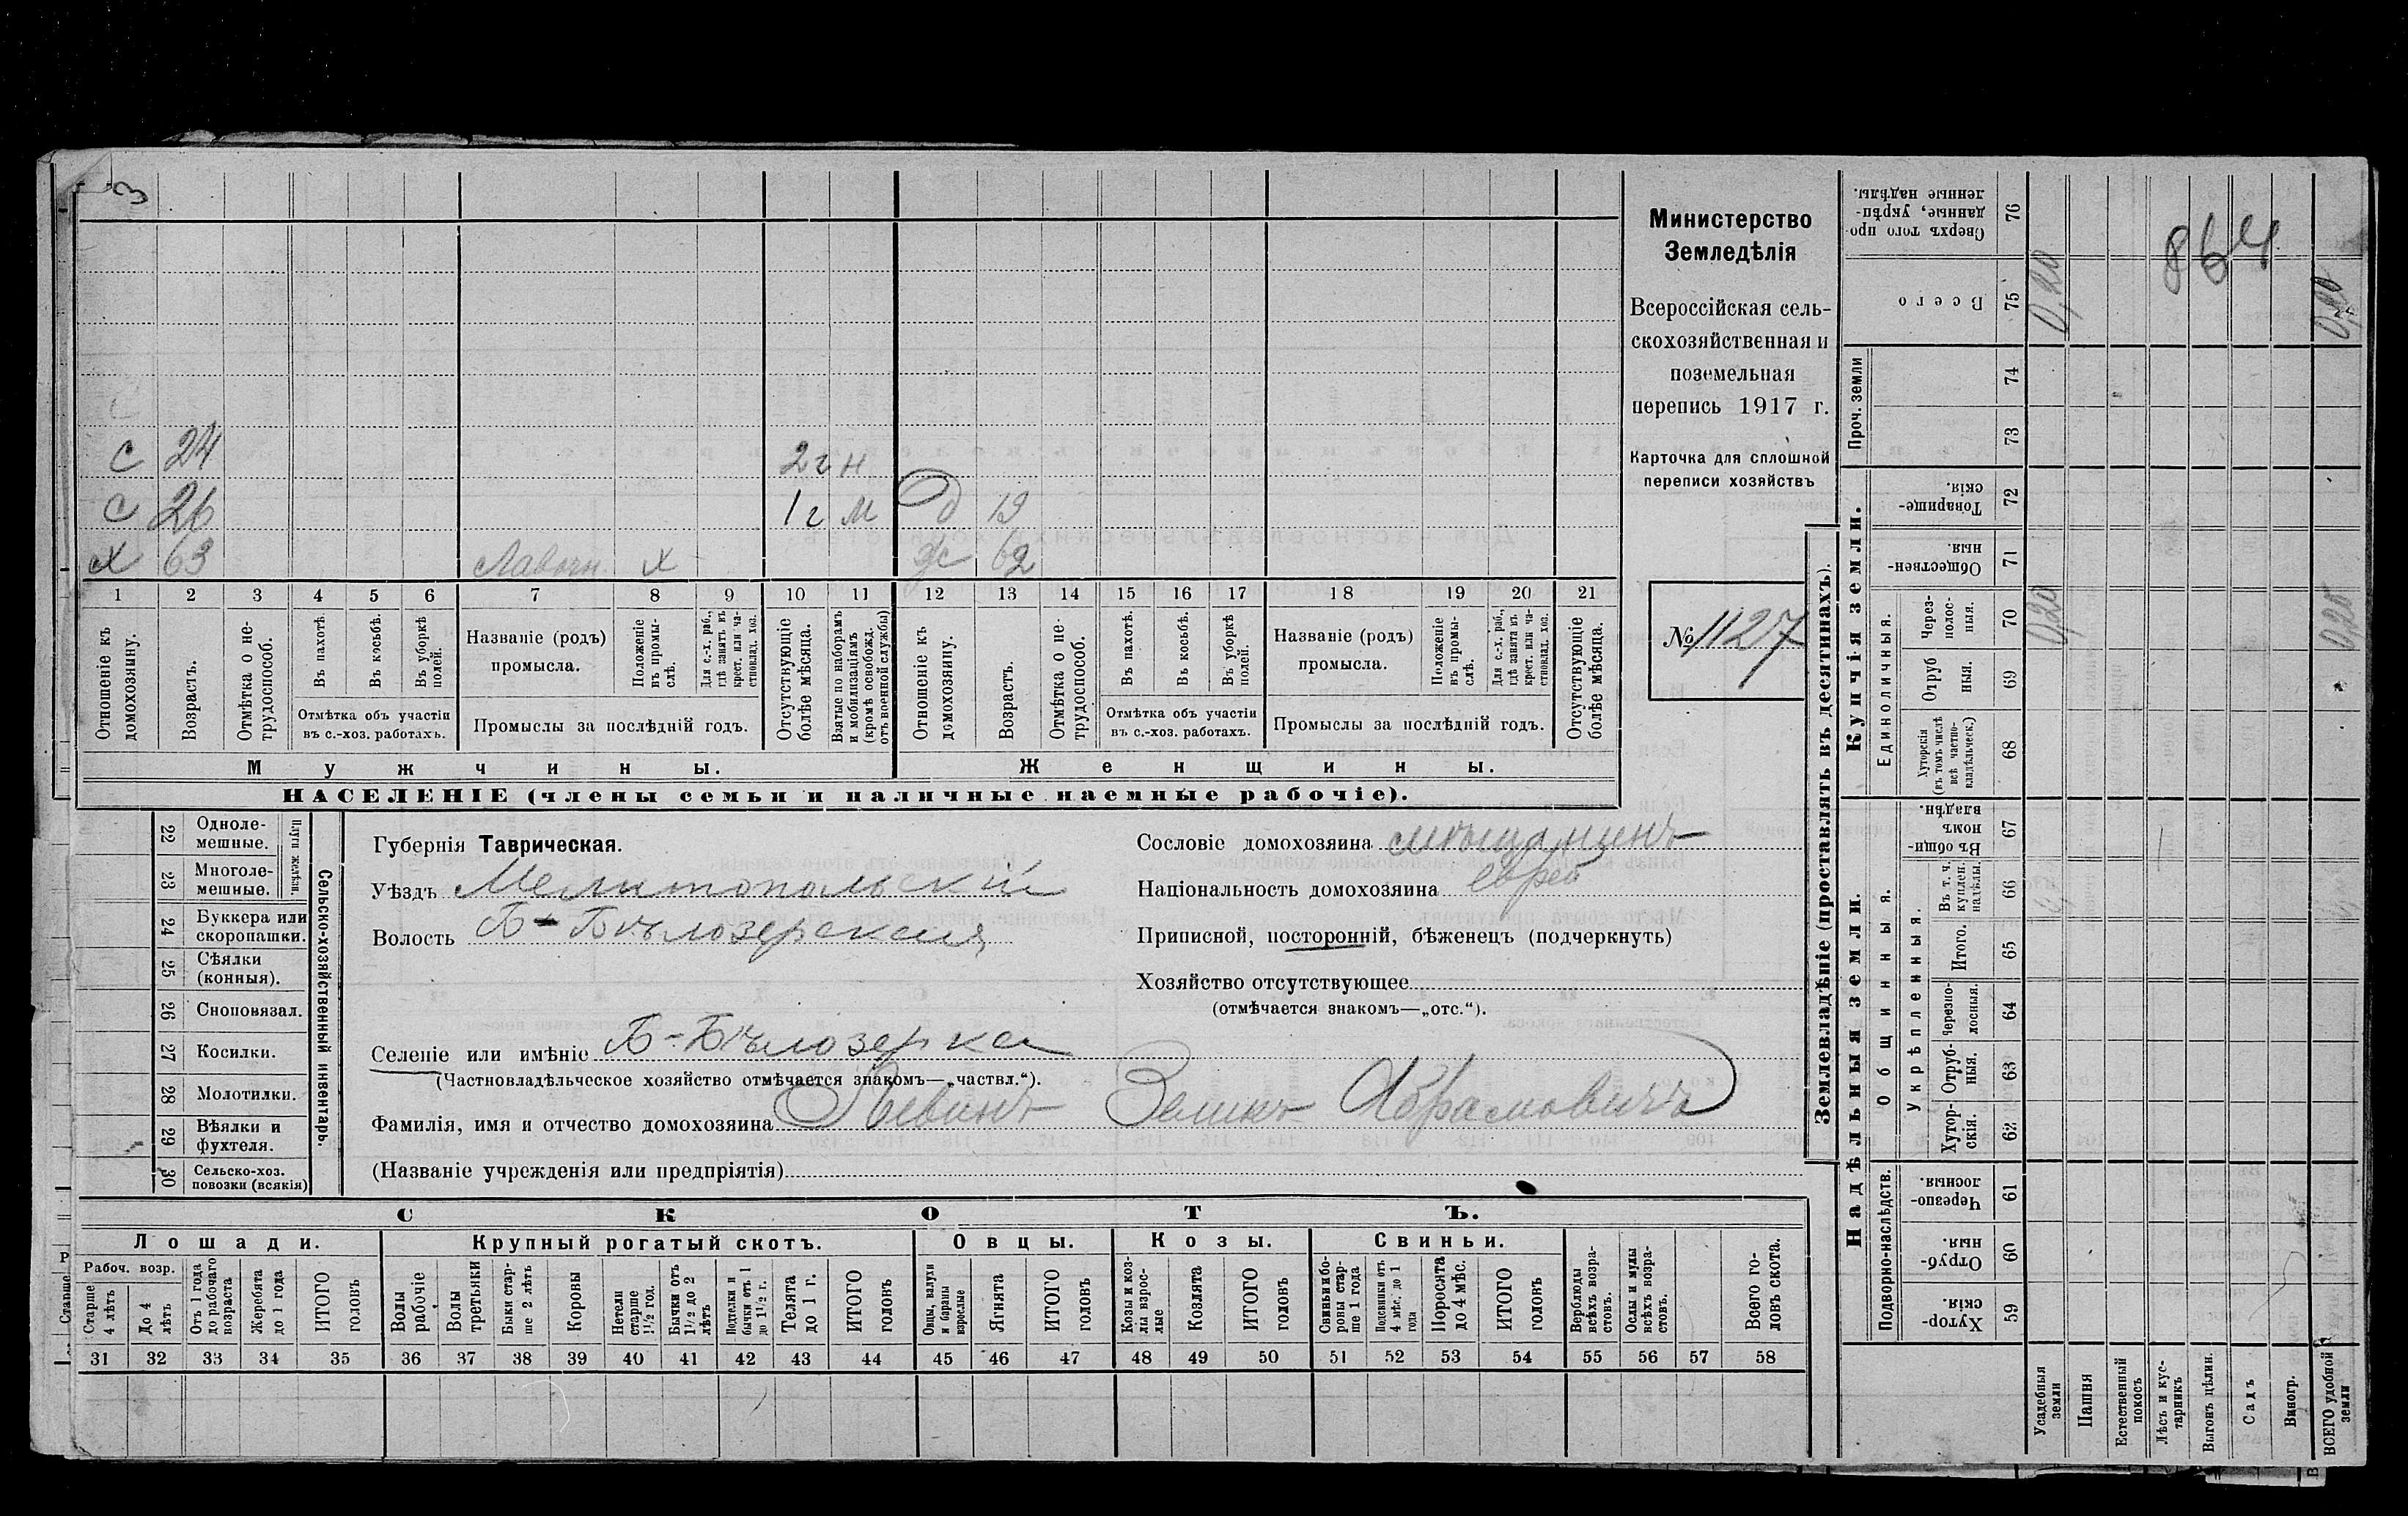 3
с 24 2 г н
с 26 1 г м д 19
х 63 Лавочн. х ж 62
1 2 3 4 5 6 7 8 9 10 11 12 13 14 15 16 17 18 19 20 21
Отношеніе къ домохозяину.
Возрастъ.
Отмѣтка о не-
трудоспособ.
Въ пахотѣ.
Въ косьбѣ.
Въ уборкѣ
полей.
Отмѣтка объ участіи
въ с.-хоз. работахъ.
Названіе (родъ)
промысла.
Положеніе
въ промы-
слѣ.
Для с.-х. раб.,
гдѣ занятъ въ
крест. или ча-
стновлад. хоз.
Промыслы за послѣдній годъ.
Отсутствующіе
болѣе мѣсяца.
Взятые по наборамъ
и мобилизаціямъ
(кромѣ освобожд.
отъ военной службы)
Отношеніе къ
домохозяину.
Возрастъ.
Отмѣтка о не-
трудоспособ.
Въ пахотѣ.
Въ косьбѣ.
Въ уборкѣ
полей.
Отмѣтка объ участіи
въ с.-хоз. работахъ.
Названіе (родъ)
промысла.
Положеніе
въ промы-
слѣ.
Для с.-х. раб.,
гдѣ занята въ
крест. или ча-
стновлад. хоз.
Промыслы за послѣдній годъ.
Отсутствующіе
болѣе мѣсяца.
Мужчины. Женщины.
НАСЕЛЕНІЕ (члены семьи и наличные наемные рабочіе).
Министерство
Земледѣлія
Всероссійская сель-
скохозяйственная и
поземельная
перепись 1917 г.
Карточка для сплошной
переписи хозяйствъ
№ 1127
Сельско-хозяйственный инвентарь.
Плуги желѣзн.
22 Одноле-
мешные.
23 Многоле-
мешные.
24 Буккера или
скоропашки.
25 Сѣялки
(конныя).
26 Сноповязал.
27 Косилки.
28 Молотилки.
29 Вѣялки и
фухтеля.
30 Сельско-хоз.
повозки (всякія)
Губернія Таврическая.
Уѣздъ Мелитопольскій
Волость Б-Бѣлозерская
Сословіе домохозяина мѣщанинъ
Національность домохозяина еврей
Приписной, посторонній, бѣженецъ (подчеркнуть)
Хозяйство отсутствующее
(отмѣчается знакомъ—„отс.“).
Селеніе или имѣніе Б-Бѣлозерка
(Частновладѣльческое хозяйство отмѣчается знакомъ—„частвл.“).
Фамилія, имя и отчество домохозяина Левинъ Зеликъ Абрамовичъ
(Названіе учрежденія или предпріятія)
СКОТЪ.
Лошади. Крупный рогатый скотъ. Овцы. Козы. Свиньи.
Рабоч. возр.
Старше
4 лѣтъ
До 4
лѣтъ
Отъ 1 года
до рабочаго
возраста
Жеребята
до 1 года
ИТОГО
головъ
Волы
рабочіе
Волы
третьяки
Быки стар-
ше 2 лѣтъ
Коровы
Нетели
старше
1½ год.
Бычки отъ
1½ до 2
лѣтъ
Подтелки и
бычки отъ 1
до 1½ г.
Телята
до 1 г.
ИТОГО
головъ
Овцы, валухи
и бараны
взрослые
Ягнята
ИТОГО
головъ
Козы и коз-
лы взрос-
лые
Козлята
ИТОГО
головъ
Свиньи и бо-
ровы стар-
ше 1 года
Подсвинки отъ
4 мѣс. до 1
года
Поросята
до 4 мѣс.
ИТОГО
головъ
Верблюды
всѣхъ возра-
стовъ.
Ослы и мулы
всѣхъ возра-
стовъ.
Всего го-
ловъ скота.
31 32 33 34 35 36 37 38 39 40 41 42 43 44 45 46 47 48 49 50 51 52 53 54 55 56 57 58
Землевладѣніе (проставлять въ десятинахъ).
Надѣльныя земли. Купчія земли. Проч. земли
Подворно-наслѣдств. Общинныя. Единоличныя.
Укрѣпленныя.
Хутор-
скія. 59
Отруб-
ныя. 60
Черезпо-
лосныя. 61
Хутор-
скія. 62
Отруб-
ныя. 63
Черезпо-
лосныя. 64
Итого. 65
Въ т. ч.
куплен.
надѣлы. 66
Въ общи-
номъ
владѣн. 67
Хуторскія
(въ томъ числѣ
всѣ частно-
владѣльческ.) 68
Отруб
ныя. 69
Через-
полос-
ныя. 70
Обществен-
ныя. 71
Товарище-
скія. 72
73
74
Всего 75
Сверхъ того про-
данные, укрѣп-
ленные надѣлы. 76
Усадебныя
земли
Пашня
Естественный
покосъ
Лѣсъ и кус-
тарникъ
Выгонъ цѣлин.
Садъ
Виногр.
ВСЕГО удобной
земли
0,20
0,20
0,20
0,20
864